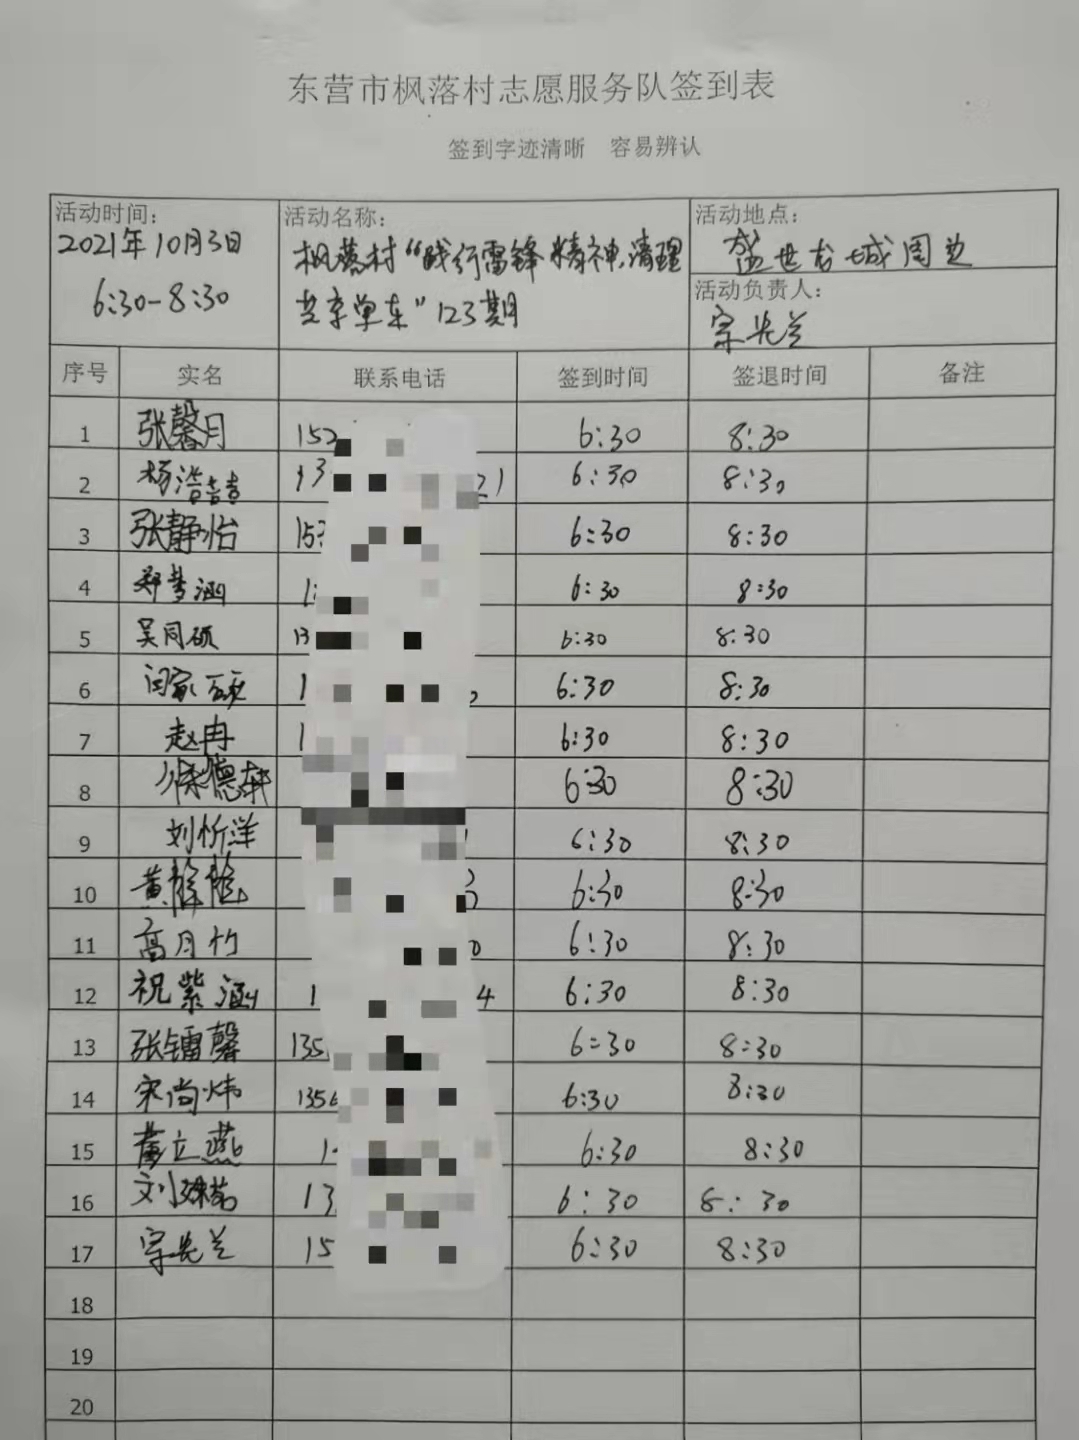 东营市枫落村志愿服务队签到表
签到字迹清晰 容易辨认
活动时间: 活动名称: 活动地点:
2021年10月3日 枫落村“践行雷锋精神,清理 盛世龙城周边
6:30-8:30 共享单车”123期 活动负责人:
宗长兰
序号 实名 联系电话 签到时间 签退时间 备注
1 张馨月 152 6:30 8:30
2 杨浩喆 13 21 6:30 8:30
3 张静怡 153 6:30 8:30
4 郑梦涵 1 6:30 8:30
5 吴同硕 13 6:30 8:30
6 闫家硕 1 6:30 8:30
7 赵冉 1 6:30 8:30
8 德轩 6:30 8:30
9 刘忻洋 6:30 8:30
10 黄 6:30 8:30
11 高月竹 0 6:30 8:30
12 祝紫涵 1 4 6:30 8:30
13 张镭馨 135 6:30 8:30
14 宋尚炜 1356 6:30 8:30
15 董立燕 1 6:30 8:30
16 刘 13 6:30 8:30
17 宗长兰 15 6:30 8:30
18
19
20